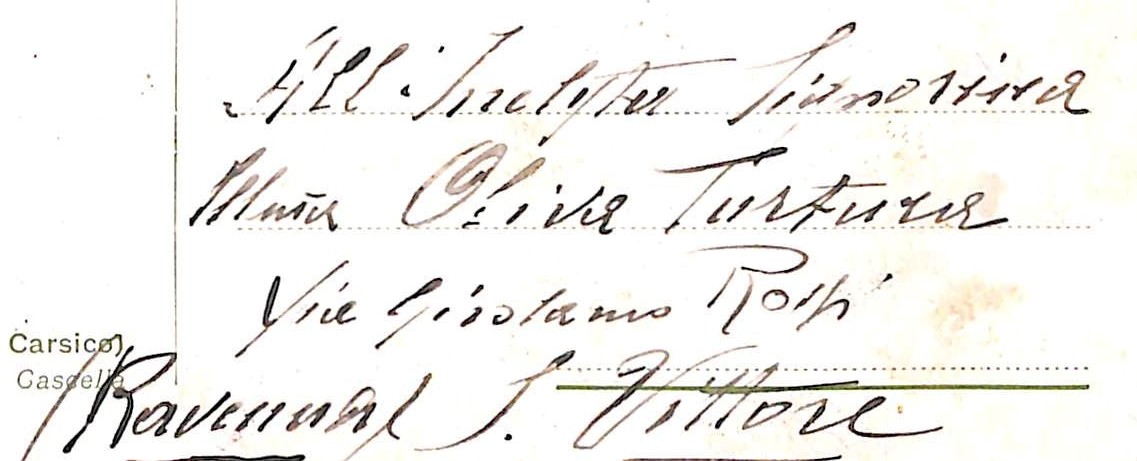 All'Inclyta Signorina
Maria Oliva Tortura
Via Girolamo Rossi
Carsico)
Cascella
(Ravenna) S. Vittore